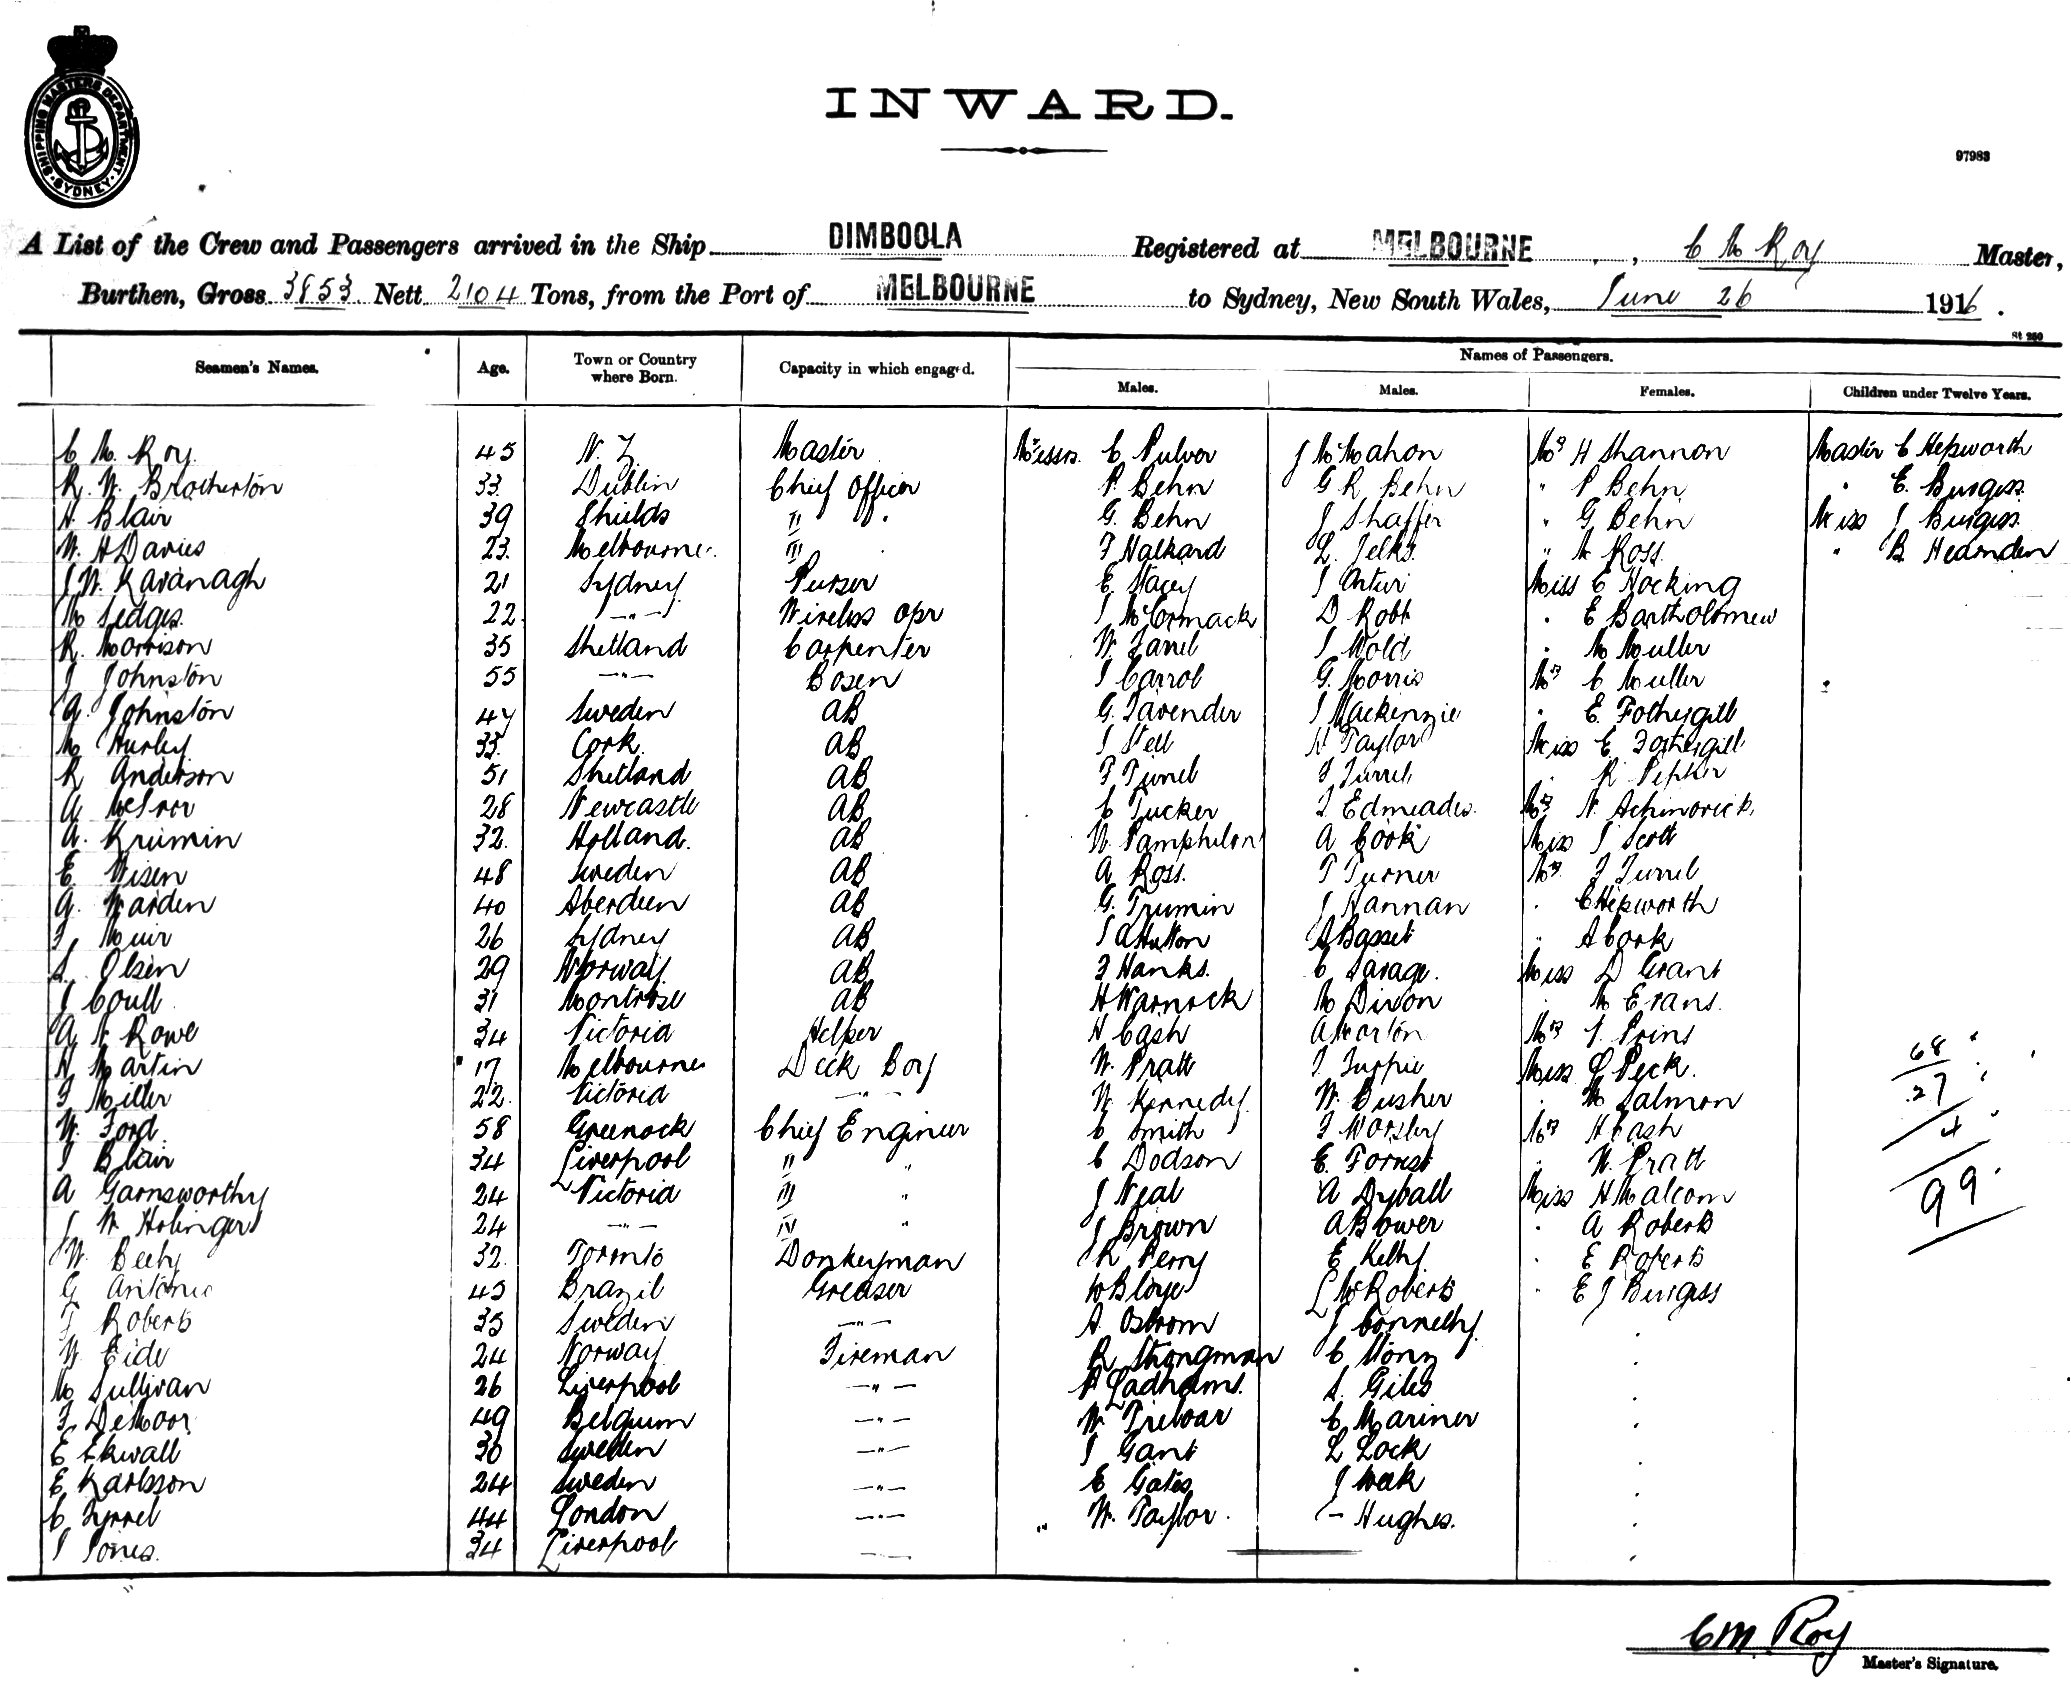 SHIPPING MASTERS DEPARTMENT SYDNEY
INWARD.
97983
A List of the Crew and Passengers arrived in the Ship DIMBOOLA Registered at MELBOURNE, C M Roy Master,
Burthen, Gross 3853 Nett 2104 Tons, from the Port of MELBOURNE to Sydney, New South Wales, June 26 1916.
St 250
Seamen's Names. Age. Town or Country where Born. Capacity in which engaged. Names of Passengers.
Males. Males. Females. Children under Twelve Years.
C M. Roy 45 N. Z Master Messrs. C Pulver J McMahon Mrs H Shannon Master C Hepworth
R. W. Brotherton 33 Dublin Chief Officer P. Behn G R Behn " P Behn " E. Burgess
H Blair 39 Shields II " G. Behn J Shaffer " G Behn Miss J Burgess
W. H Davies 23 Melbourne III F Halkard L. Jelks " M Ross " B Hearnden
J W. Kavanagh 21 Sydney Purser E Stacey J Artur Miss C Hocking
M Sedges 22 -"- Wireless opr J McCormack D Robb " E Bartholomew
R. Morrison 35 Shetland Carpenter W. Farrel J Wold " M Muller
J Johnston 55 -"- Bosen J Carrol G. Morris Mrs C Muller
A. Johnston 47 Sweden AB G. Lavender J Mackenzie " E. Fothergill
M Hurley 33 Cork AB J Stell H Taylor Miss E Fothergill
R Anderson 51 Shetland AB F Turrel F Turrel " R Pepker
A McIvor 28 Newcastle AB C Tucker J Edmeades Mrs N. Achinovich
A. Krumin 32 Holland. AB W. Pamphilon A Cook Miss J Scott
E Nisen 48 Sweden AB A Ross. T Turner Mrs F Turrel
G. Warden 40 Aberdeen AB G. Trumin J Hannan " C Hepworth
J Muir 26 Sydney AB J A Hutton A Basset " A Cook
S. Olsen 29 Norway AB F Hanks. C Savage. Miss D Grant
J Coull 31 Montrose AB H Warnock M Dixon " M Evans.
A W Rowe 34 Victoria Helper H Cash A Morton Mrs V. Prins
H Martin 17 Melbourne Deck Boy W. Pratt J Turpie Miss L Peck. 68
F Miller 22 Victoria -"- W Kennedy W. Busher " M Salmon 27
W. Ford 58 Greenock Chief Engineer C Smith F Worsley Mrs H Cash 4
J Blair 34 Liverpool II " C Dodson E. Forrest " W. Pratt
A Garnsworthy 24 Victoria III " J Neal A Dyball Miss H Malcom 99
J W. Holinger 24 -"- IV " J Brown A Bower " A Roberts
W Beehy 32 Toronto Donkeyman R Perry E Kelly " E Roberts
G Antonio 45 Brazil Greaser W Bloye L McRoberts " E J Burgess
F Roberts 35 Sweden -"- A. Ostrom J Connelly
W Eide 24 Norway Fireman R Strongman C Story
M Sullivan 26 Liverpool -"- P Ladhams. S. Giles
F DeMoor 49 Belgium -"- W. Treloar C Mariner
E Ekwall 30 Sweden -"- J Gant L Lock
E Karlsson 24 Sweden -"- E Gates J Week
C Tyrrel 44 London -"- " W. Taylor - Hughes.
J Jones. 34 Liverpool -"-
C M Roy
Master's Signature.